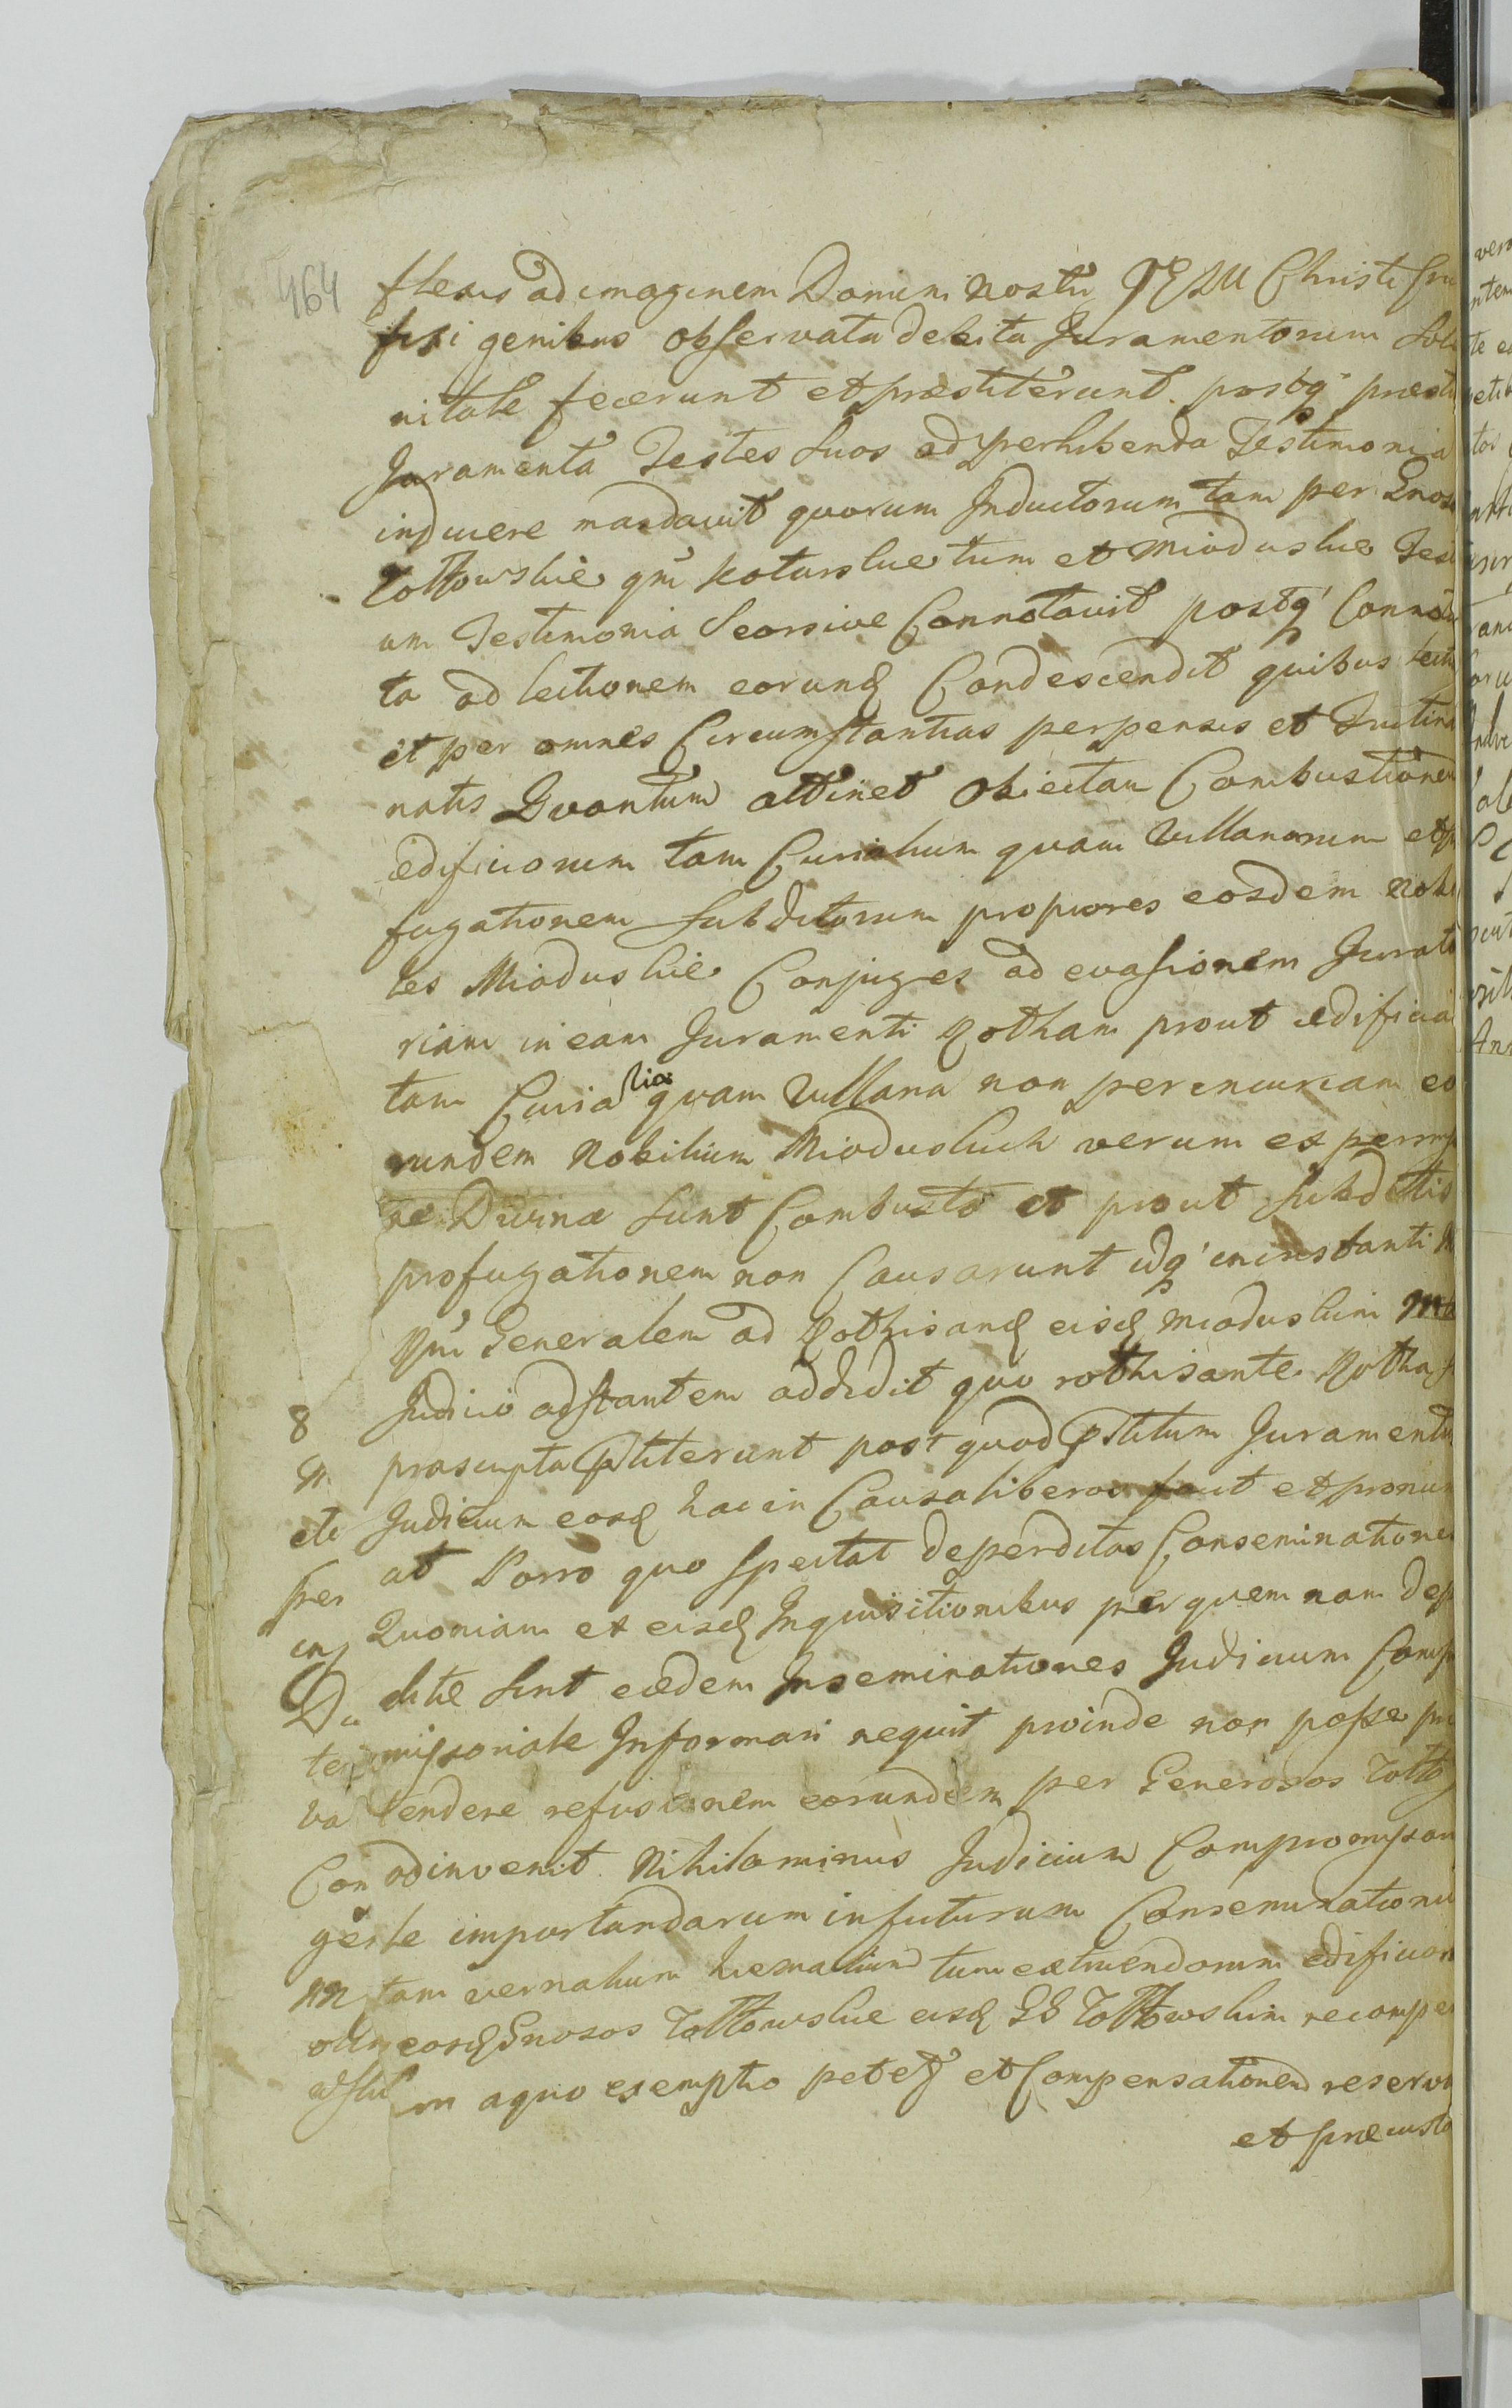 464
flexis ad imaginem Domini Nostri JESU Christi Cru
fixi genibus observata debita Juramentorum Sole
nitate fecerunt et præstiterunt. postq' præsti
Juramenta Testes suos ad perhibenda Testimonia
inducere mandavit quorum Inductorum tam per Gnoso
Tottowskie qm̃ Koturskie tum et Mioduskie Testi
um Testimonia Seorsive Connotavit postq' Connota
ta ad lectionem eorund Condescendit quibus lectis
et per omnes Circumstantias perpensis et Trutina
natis Quantum attinet Obiectam Combustionem
ædificiorum tam Curialium quam Villanorum et pro
fugationem Subditorum propiores eosdem Nobi
les Mioduskie Conjuges ad evasionem Jurato
riam in eam Juramenti Rotham prout ædificia
tam Curialia quam Villana non per incuriam eo
rundem Nobilium Mioduskich verum ex permis
ne Divina sunt Combusta et prout Subditis
profugationem non Causarunt idq' in instanti M
Rm̃ Generalem ad Rothisand eisd Mioduskim
Judicio adstantem addidit quo rothisante Rotha
præscripta pstiterunt post quod pstitum Juramentu
Judicium eosd hac in Causa liberos facit et pronun
at Porro quo Spectat deperditas Conseminationes
Quoniam ex eisd Inquisitionibus per quem nam dep
ditæ sint eædem Inseminationes Judicium Comp
missoriale Informari nequit proinde non posse pro
tendere refusionem eorundem per Generosos Totto
adinvenit. Nihilominus Judicium Compromisson
le importandarum in futurum Conseminationu
tam vernalium hiemalium tum extruendorum ædificior
eosd Gnosos Tottowskie eisd GG Tottowskim recompen
m a quo exemptio petet et Compensationem reserva
et præcusto
8
M
ete
per
inj
Du
te
va
Con
ges
nn
olim